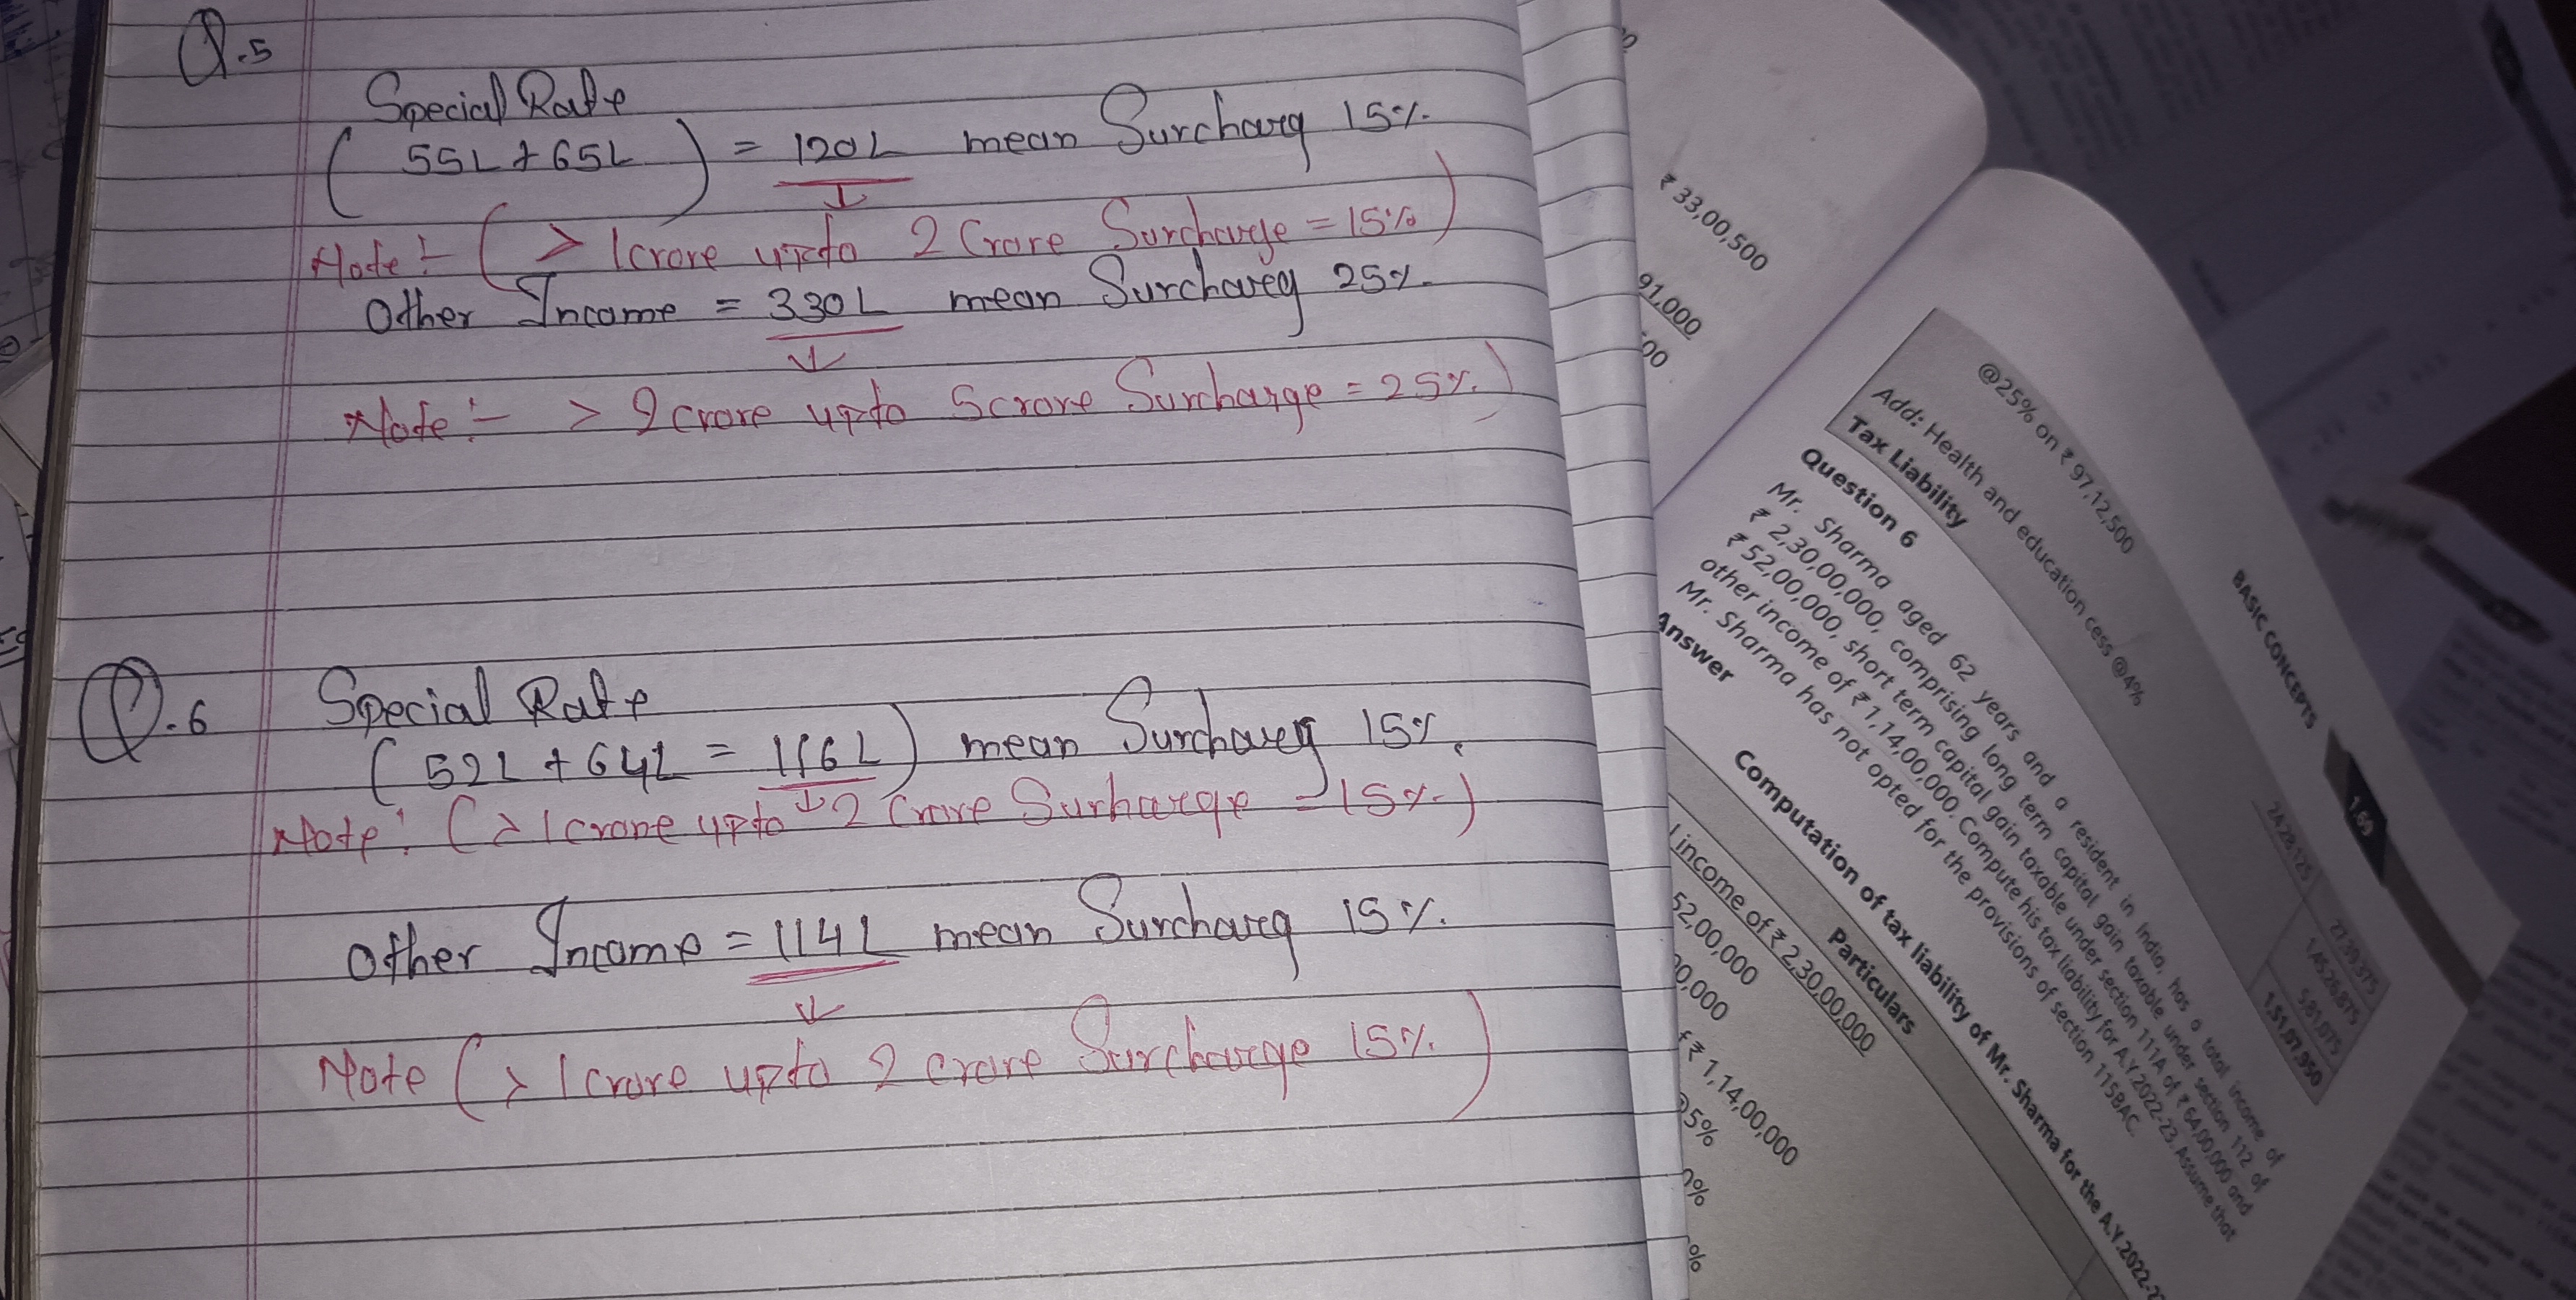 Q.5
Special Rate
( 55L + 65L ) = 120L mean Surcharg 15%.
Note :- ( > 1crore upto 2 Crore Surcharge = 15% )
Other Income = 330L mean Surchareg 25%.
Note :- > 2 crore upto 5crore Surcharge = 25%. )
Q.6 Special Rate
( 52L + 64L = 116L ) mean Surchareg 15%.
Note : ( > 1crore upto 2 Crore Surharge = 15%. )
Other Income = 114L mean Surchareg 15%.
Note ( > 1crore upto 2 crore Surcharge 15%. )
₹ 33,00,500
91,000
00
@25% on ₹ 97,12,500
24,28,125
27,39,375
1,45,26,875
Add: Health and education cess @4%
5,81,075
Tax Liability
1,51,07,950
BASIC CONCEPTS
1.69
Question 6
Mr. Sharma aged 62 years and a resident in India, has a total income of
₹ 2,30,00,000, comprising long term capital gain taxable under section 112 of
₹ 52,00,000, short term capital gain taxable under section 111A of ₹ 64,00,000 and
other income of ₹ 1,14,00,000. Compute his tax liability for A.Y.2022-23. Assume that
Mr. Sharma has not opted for the provisions of section 115BAC.
Answer
Computation of tax liability of Mr. Sharma for the A.Y.2022-2
Particulars
income of ₹ 2,30,00,000
52,00,000
0,000
₹ 1,14,00,000
5%
%
%